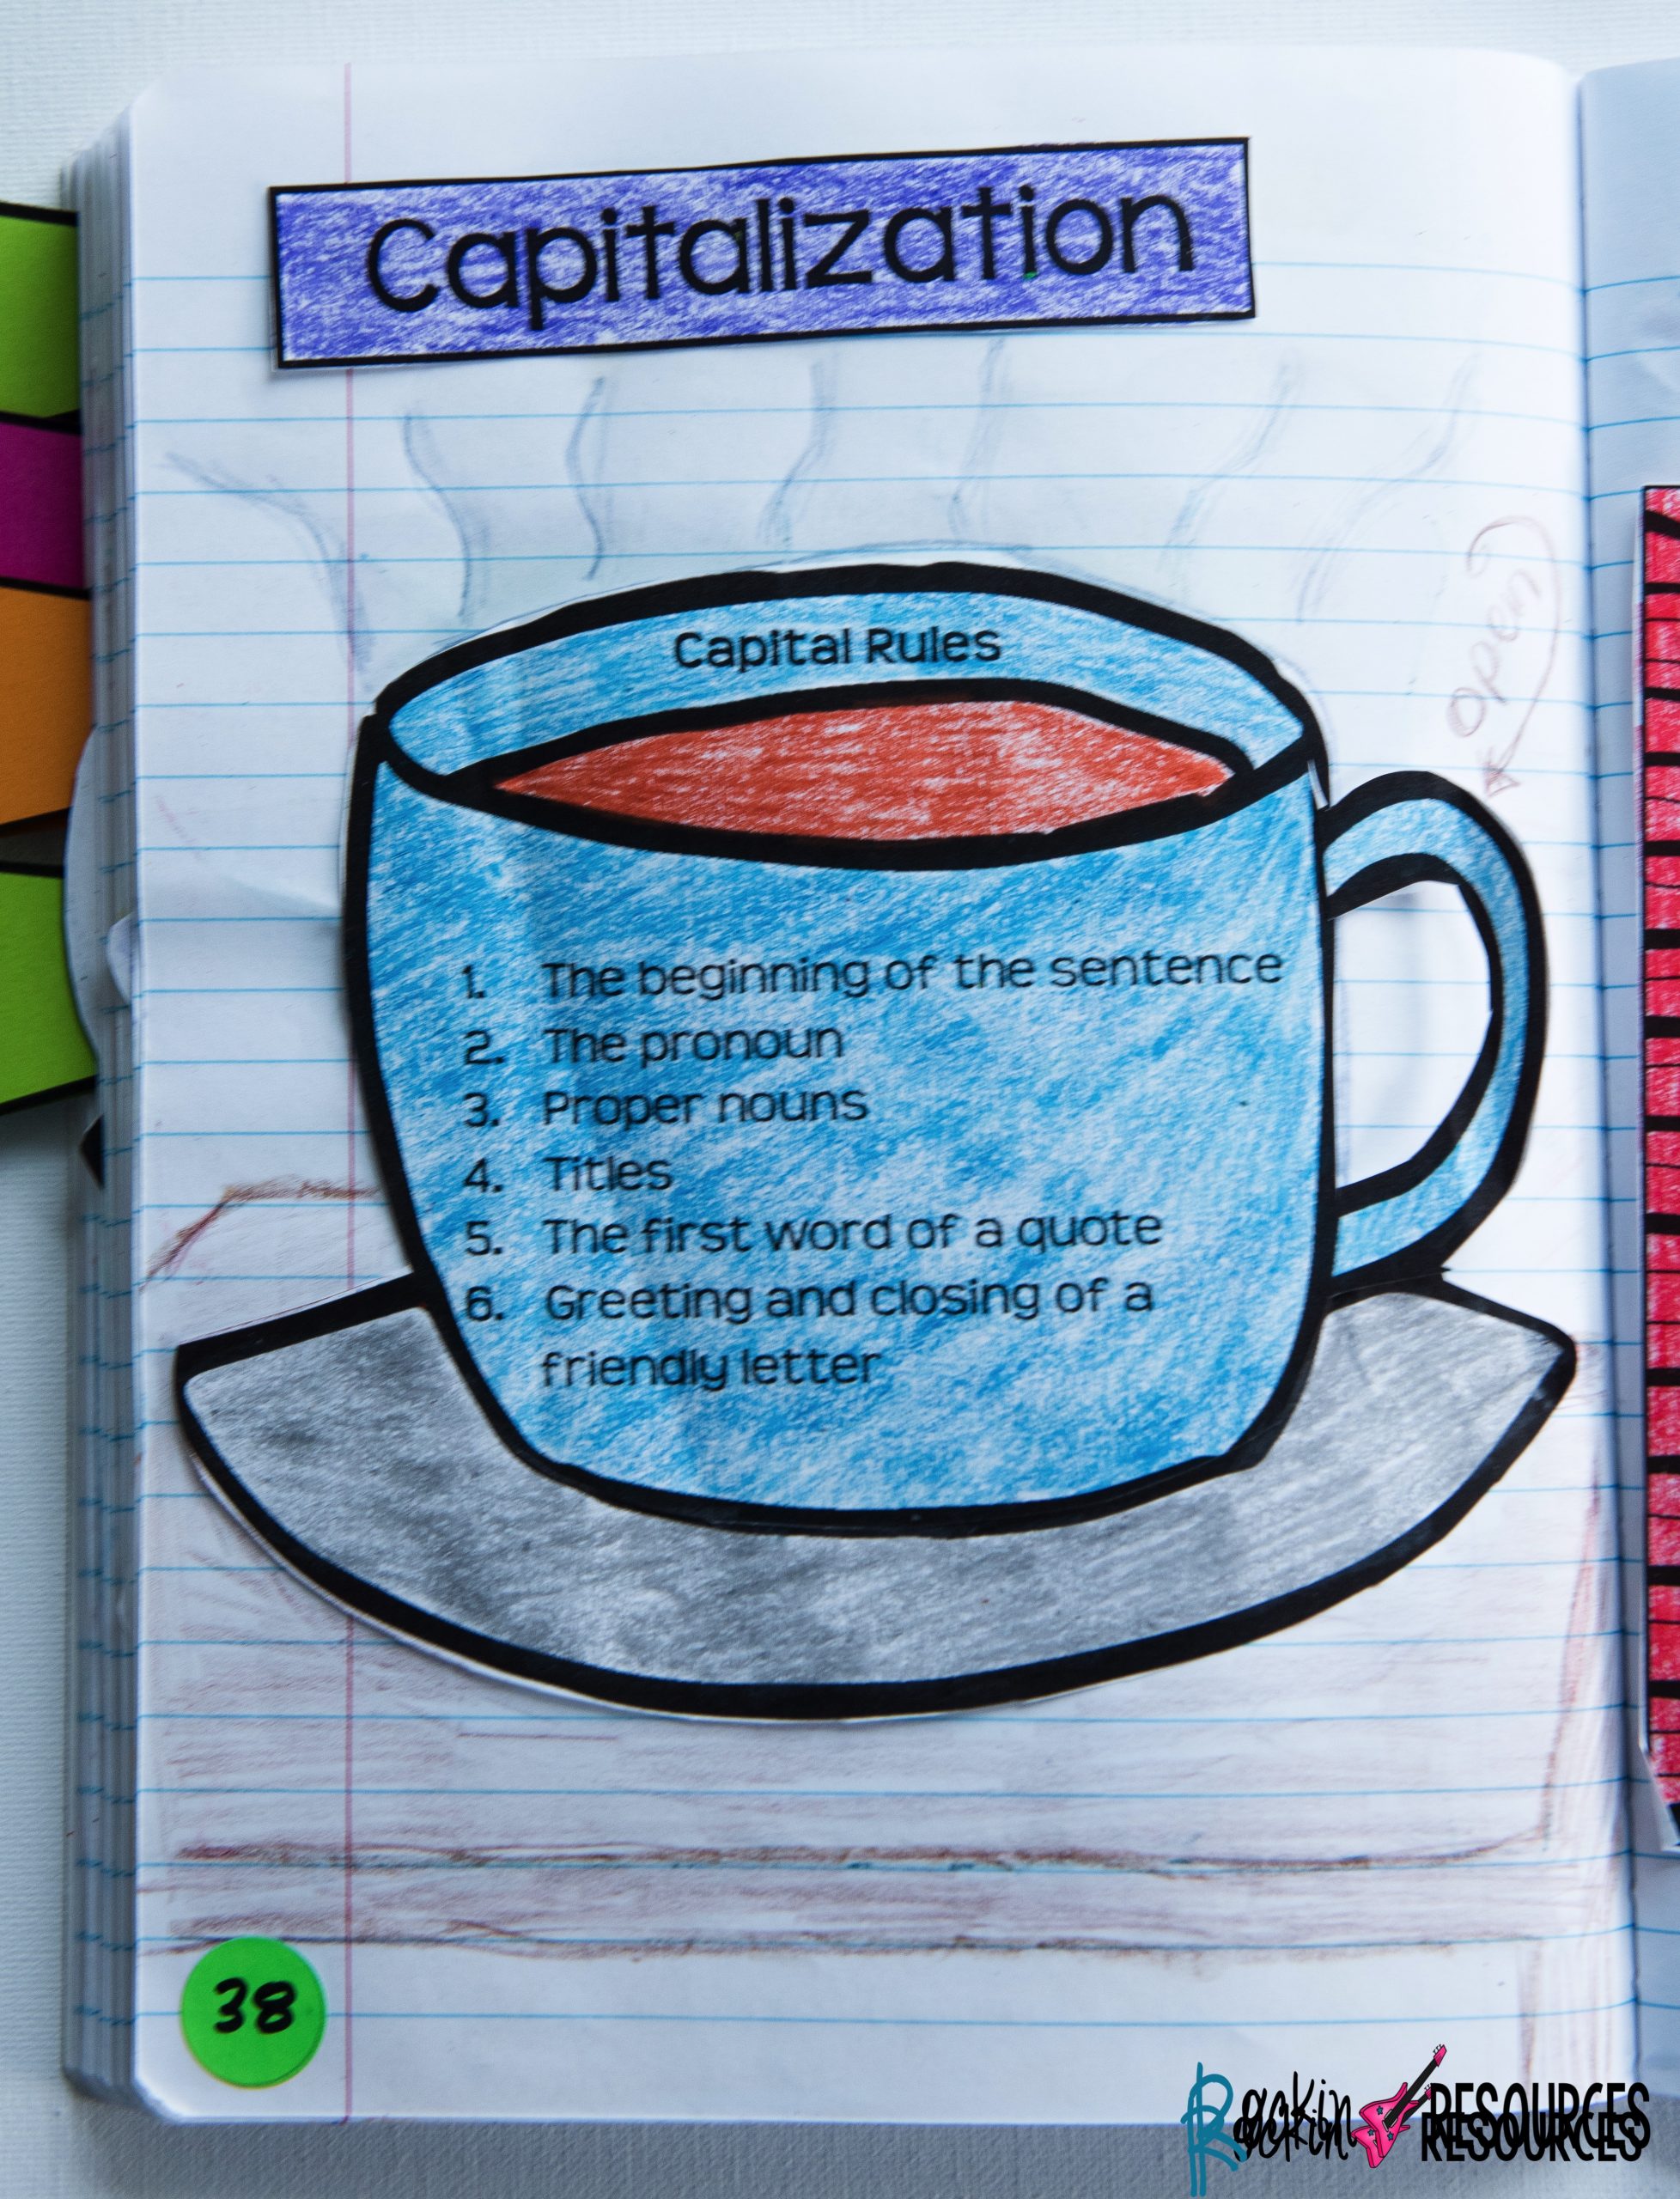 Capitalization
Capital Rules
open
1. The beginning of the sentence
2. The pronoun
3. Proper nouns
4. Titles
5. The first word of a quote
6. Greeting and closing of a
friendly letter
38
Rockin RESOURCES